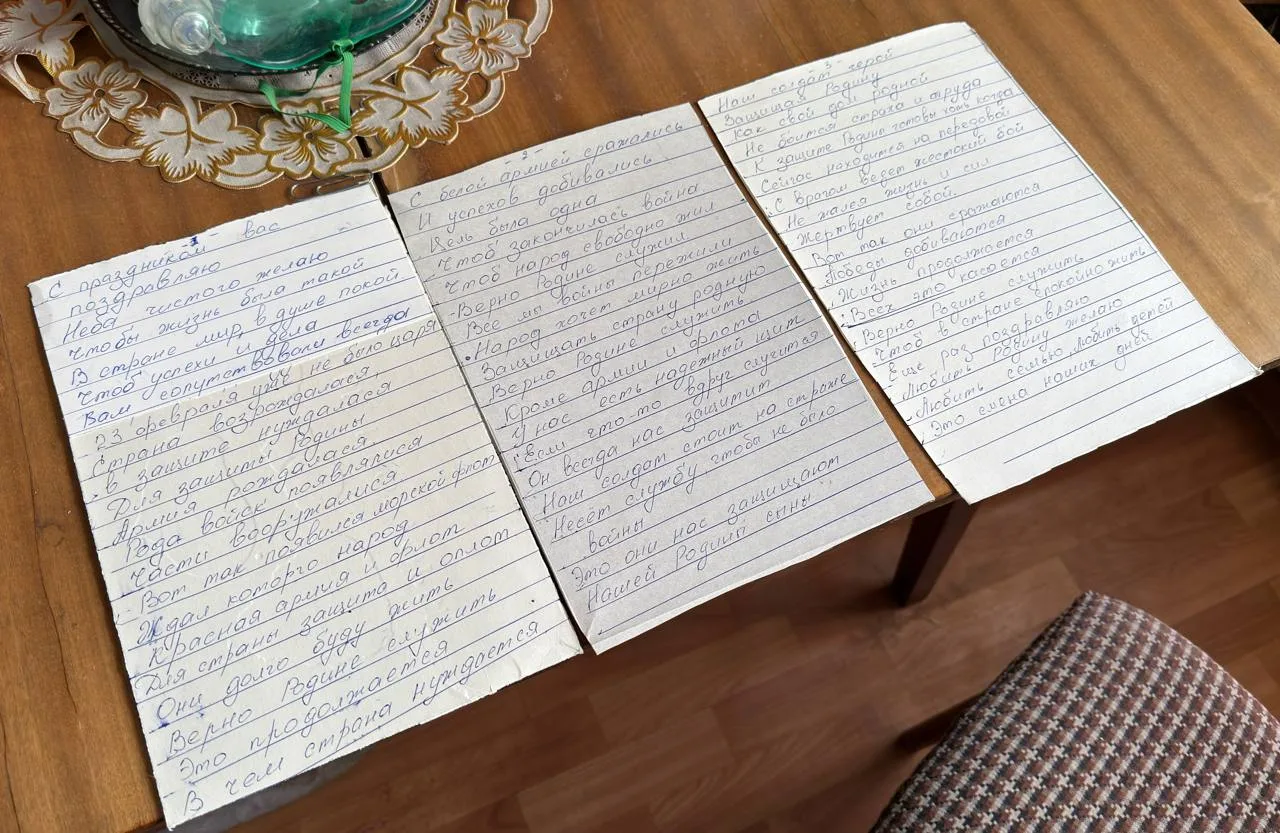 -1-
С праздником вас
поздравляю
Неба чистого желаю
Чтобы жизнь была такой
В стране мир, в душе покой
Чтоб успехи и дела
Вам сопутствовали всегда
23 февраля уже не было царя
Страна возрождалася
в защите нуждалася
Для защиты Родины
Армия рождалася.
Рода войск появлялися
Части вооружалися
Вот так появился морской флот
Ждал которго народ
Красная армия и флот
Для страны защита и оплот
Они долго буду жить
Верно Родине служить
Это продолжается
В чем страна нуждается
-2-
С белой армией сражались
И успехов добивались
Цель была одна
Чтоб закончилась война
Чтоб народ свободно жил
Верно Родине служил
Все мы войны пережили
Народ хочет мирно жить
Защищать страну родную
Верно Родине служить
Кроме армии и флота
У нас есть надежный щит
Если что-то вдруг случится
Он всегда нас защитит
Наш солдат стоит на страже
Несёт службу чтобы не было
войны
Это они нас защищают
Нашей Родины сыны
-3-
Наш солдат герой
Защищая Родину
Как свой дом родной
Не боится страха и труда
К защите Родине готовы хоть когда
Сейчас находится на передовой
С врагом ведет жестокий бой
Не жалея жизнь и сил
Жертвует собой.
Вот так они сражаются
Победы добиваются
Жизнь продолжается
Всех это касается
Верно Родине служить
Чтоб в стране спокойно жить
Еще раз поздравляю
Любить Родину желаю
Любить семью, любить детей
Это смена наших дней